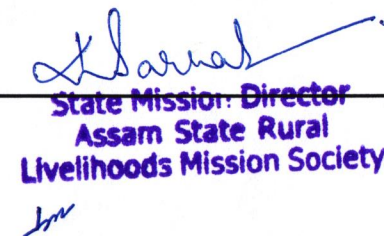 State Mission Director
Assam State Rural
Livelihoods Mission Society